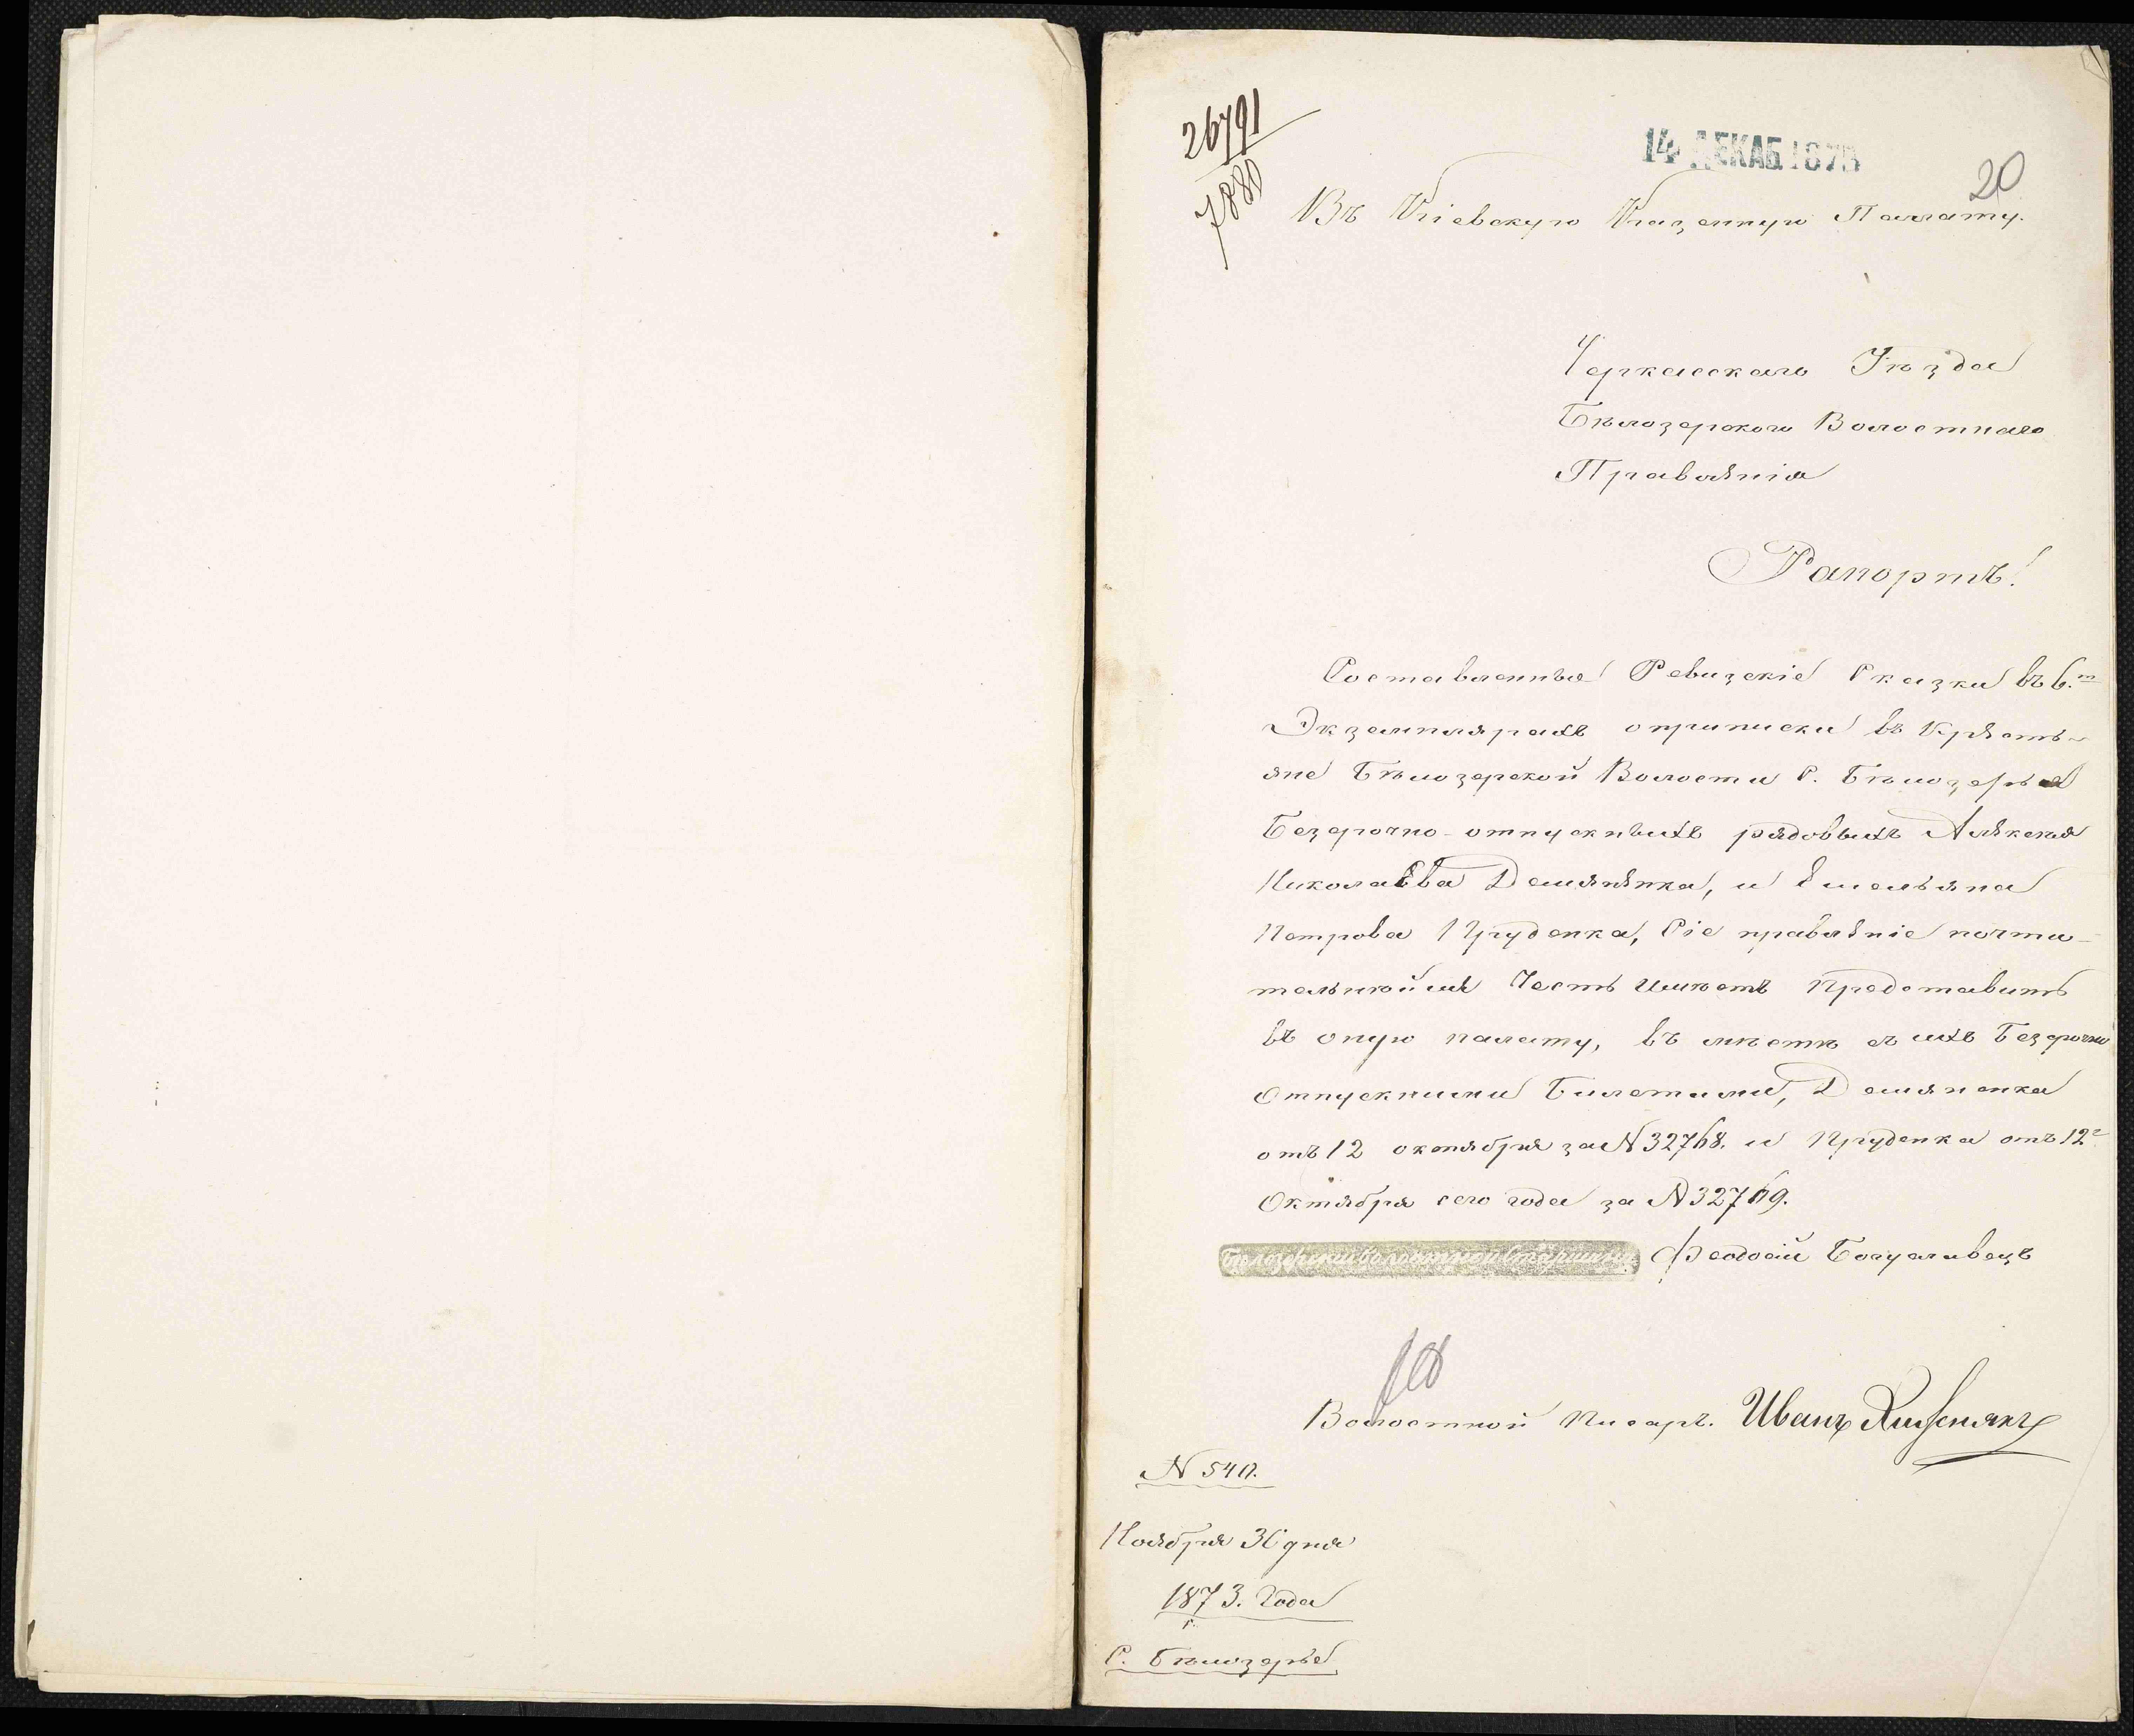 26791
7880
14 ДЕКАБ 1873
20
Въ Кіевскую Казенную Палату.
Черкасскаго Уѣзда
Бѣлозерского Волостнаго
Правленія
Рапортъ!
Составленныя Ревизскіе Сказки въ 6.
Экземплярахъ о приписки въ Кресть-
яне Бѣлозерской Волости С. Бѣлозерья
Безсрочно-отпускныхъ рядовыхъ Алексея
Николаева Демяненка, и Емельяна
Петрова Груденка, Сіе правленіе почти-
тельнѣйше Честь имѣетъ Представить
въ оную палату, въ мѣстѣ съ ихъ Безсрочно
Отпускними Билетами, Демяненка
отъ 12 октября за N 32768. и Груденка отъ 12
Октября сего года за N 32769.
Белозерскій волостной старшина Феодосій Богуславецъ
Волостной Писарь. Иванъ
N 540.
Ноября 30 дня
1873. Года
С. Бѣлозерье